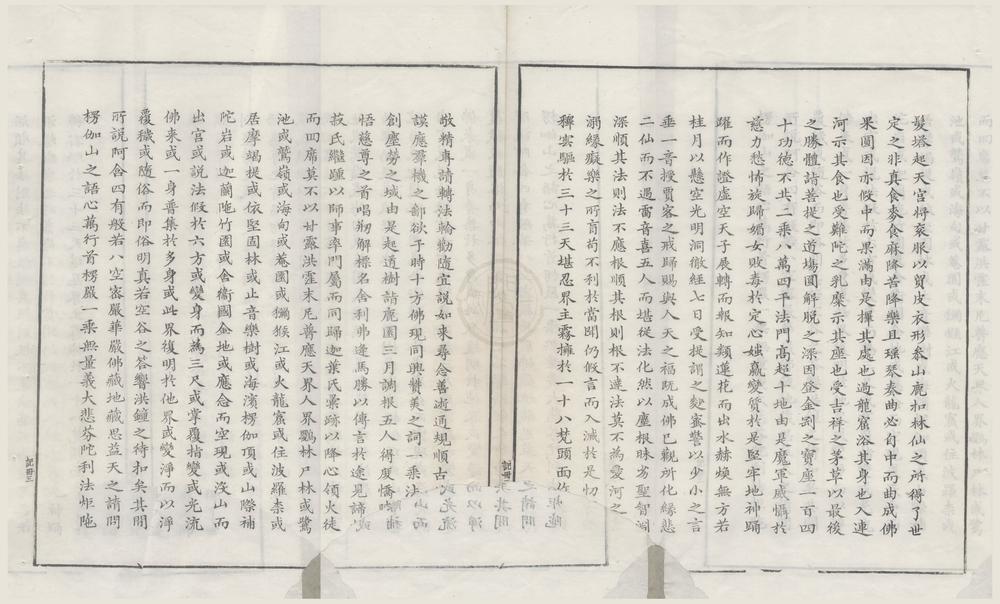 髮塔起天宮将袞服以貿皮衣形叅山鹿扣林仙之所得了世
定之非真食麥食麻降苦降樂且瑶琴奏曲必自中而曲成佛
果圓因亦假中而果滿由是擇其處也過龍窟浴其身也入連
河示其食也受難陀之乳糜示其座也受吉祥之茅草以最後
之勝體詣菩提之道場圓解脫之深因登金剛之寶座一百四
十功德不共二乘八萬四千法門高超十地由是魔軍威懾於
慈力愁怖旋歸媚女敗毒於定心媸羸變質於是堅牢地神踊
躍而作證虛空天子展轉而報知類蓮花而出水赫煥無方若
桂月以懸空光明洞徹經七日受提謂之麨蜜警以少小之言
垂一音授賈客之戒歸賜與人天之福既成佛已觀所化緣悲
二仙而不遇雷音喜五人而堪從法化然以塵根昧劣聖智淵
深順其法則法不應根順其根則根不達法莫不為愛河之
溺緣癡樂之所盲苟不利於當聞仍假言而入滅於是忉
稗雲驅於三十三天堪忍界主霧擁於一十八梵頭面作
敬精專請轉法輪勸隨宜說如來尋念善逝通規順古
謨應羣機之鄙欲于時十方佛現同興贊美之詞一乘法
創塵勞之域由是起道樹詣鹿園三月調根五人得度憍
悟慈尊之首唱刱解標名舍利弗逢馬勝以傳言於途見諦
菽氏繼踵以師事率門屬而同歸迦葉氏彙跡以降心領火徒
而四席莫不以甘露洪霔末尼普應天界人界鸚林尸林或鷺
池或鷲嶺或海旬或菴園或獼猴江或火龍窟或住波羅柰或
居摩竭提或依堅固林或止音樂樹或海濱楞伽頂或山際補
陀岩或迦蘭陁竹園或舍衞國金地或應念而空現或沒山而
出宮或說法假於六方或變身而為三尺或掌覆指變或光流
佛來或一身普集於多身或此界復明於他界或變淨而以淨
覆穢或隨俗而即俗明真若空谷之答響洪鐘之待扣矣其間
所說阿含四有般若八空密嚴華嚴佛藏地藏思益天之請問
楞伽山之語心萬行首楞嚴一乘無量義大悲芬陀利法炬陁